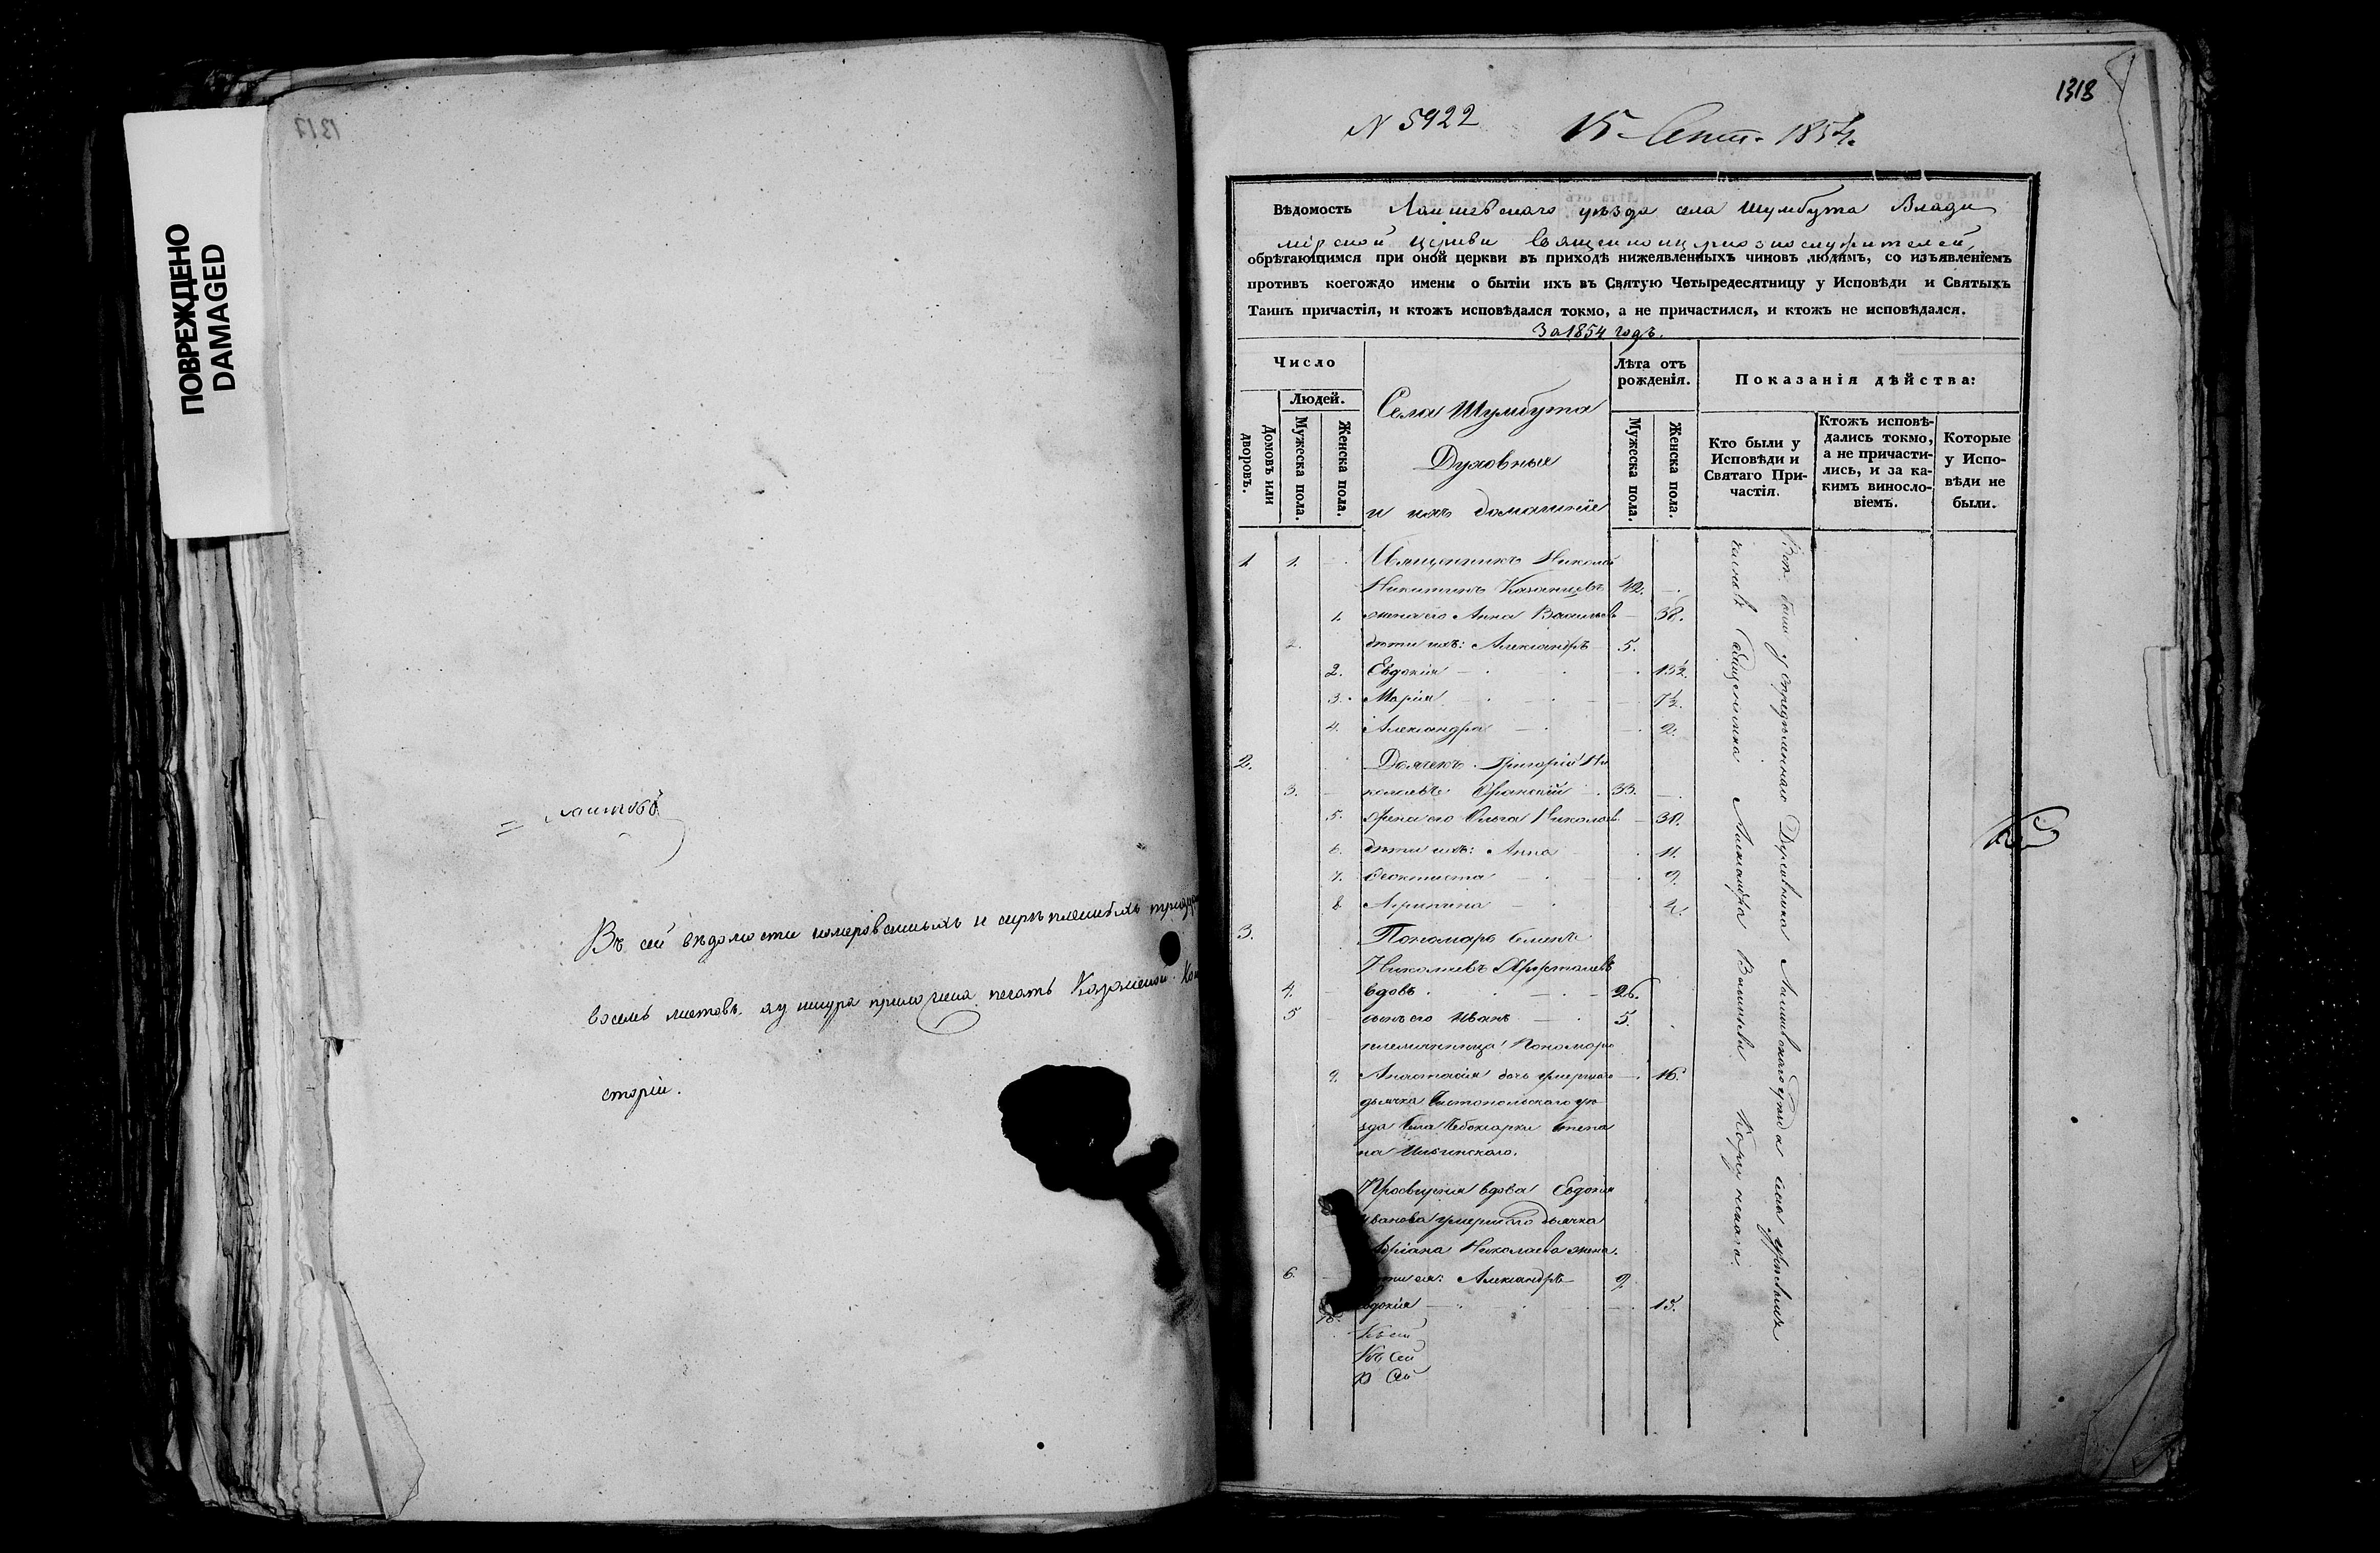 ПОВРЕЖДЕНО
DAMAGED
1317
листовъ
Въ сей вѣдомости номерованныхъ и скрѣпленныхъ тридца
восемь листовъ, а у шнура приложена печать Казанской Кон
сторіи.
1318
N 5922 15 Сент. 1854.
Вѣдомость Лаишевскаго уѣзда села Шумбута Влади
мірской церкви Священноцерковнослужителей,
обрѣтающимся при оной церкви въ приходѣ нижеявленныхъ чиновъ людямъ, со изъявленіемъ
противъ коегождо имени о бытіи ихъ въ Святую Четыредесятницу у Исповѣди и Святыхъ
Таинъ причастія, и ктожъ исповѣдался токмо, а не причастился, и ктожъ не исповѣдался.
За 1854 годъ.
Число
Людей.
Домовъ или дворовъ.
Мужеска пола.
Женска пола.
Села Шумбута
Духовные
и ихъ домашніе
Лѣта отъ рожденія.
Мужеска пола.
Женска пола.
Показанія дѣйства:
Кто были у Исповѣди и Святаго Причастія.
Ктожъ исповѣдались токмо, а не причастились, и за какимъ винословіемъ.
Которые у Исповѣди не были.
1 1. Священникъ Николай
Никитинъ Казанцевъ 42.
1. жена его Анна Васильев 38.
2. дѣти ихъ: Александръ 5.
2. Евдокія 13½.
3. Марія 7½.
4. Александра 2.
2. Дьячекъ Григорій Ни
3. колаевъ 33.
5. Жена его Ольга Николаев 31.
6. дѣти ихъ: Анна 11.
7. Феоктиста 9.
8. Агрипина 4.
3. Пономарь Семенъ
Николаевъ
4. вдовъ 26.
5 сынъ его Иванъ 5.
племянница Пономаря
9. Анастасія дочь умершаго 16.
дьячка Чистопольскаго уѣ
зда Села Чебоксарки Степа
на
Просвирня вдова Евдокія
Иванова умершаго дьячка
Адріана Николаева жена.
6. дѣти ея: Александръ 9
Евдокія 15.
Къ сей
Къ Сей
Къ Сей
Всѣ были у опредѣленнаго Духовника Лаишевскаго уѣзда села
Священника Александра Васильева